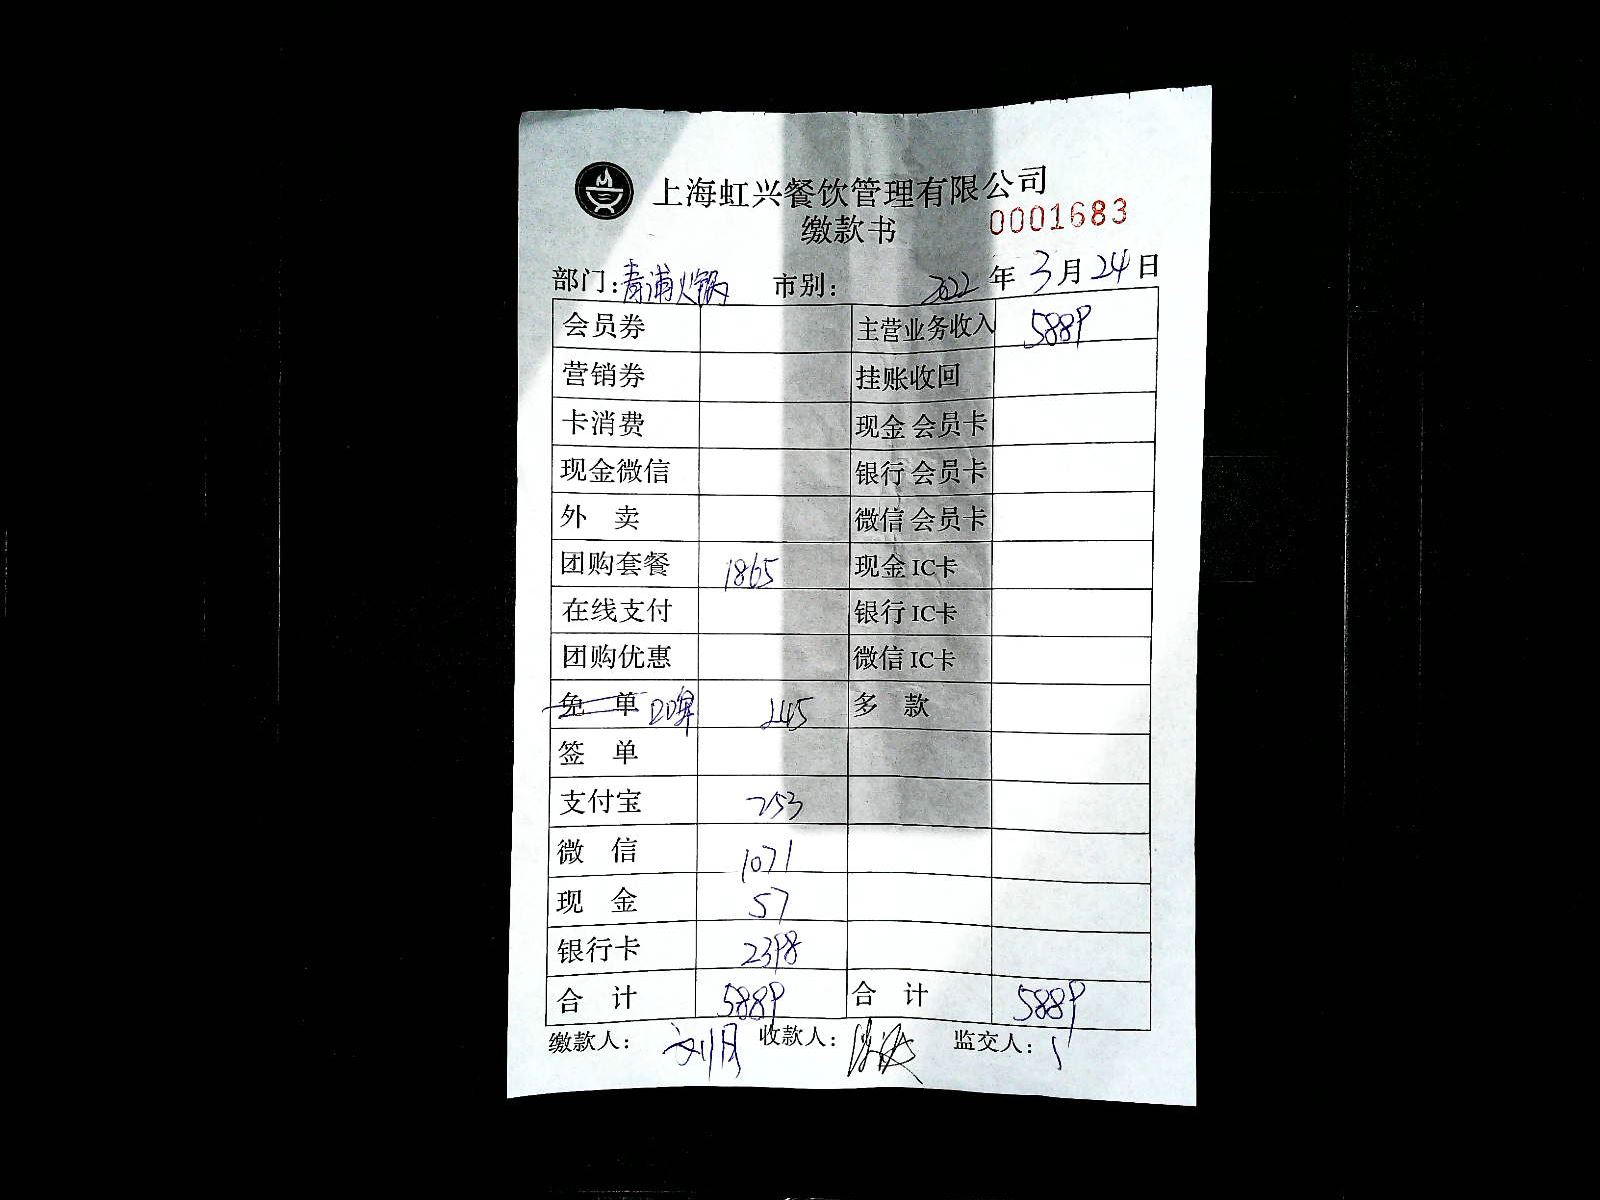 上海虹兴餐饮管理有限公司
缴款书 0001683
部门:青浦火锅 市别: 2022 年 3 月 24 日
会员券 主营业务收入 5889
营销券 挂账收回
卡消费 现金 会员卡
现金微信 银行 会员卡
外 卖 微信 会员卡
团购套餐 1865 现金 IC卡
在线支付 银行 IC卡
团购优惠 微信 IC卡
免 单 245 多 款
签 单
支付宝 253
微 信 1071
现 金 57
银行卡 2398
合 计 5889 合 计 5889
缴款人: 刘月 收款人: 监交人: